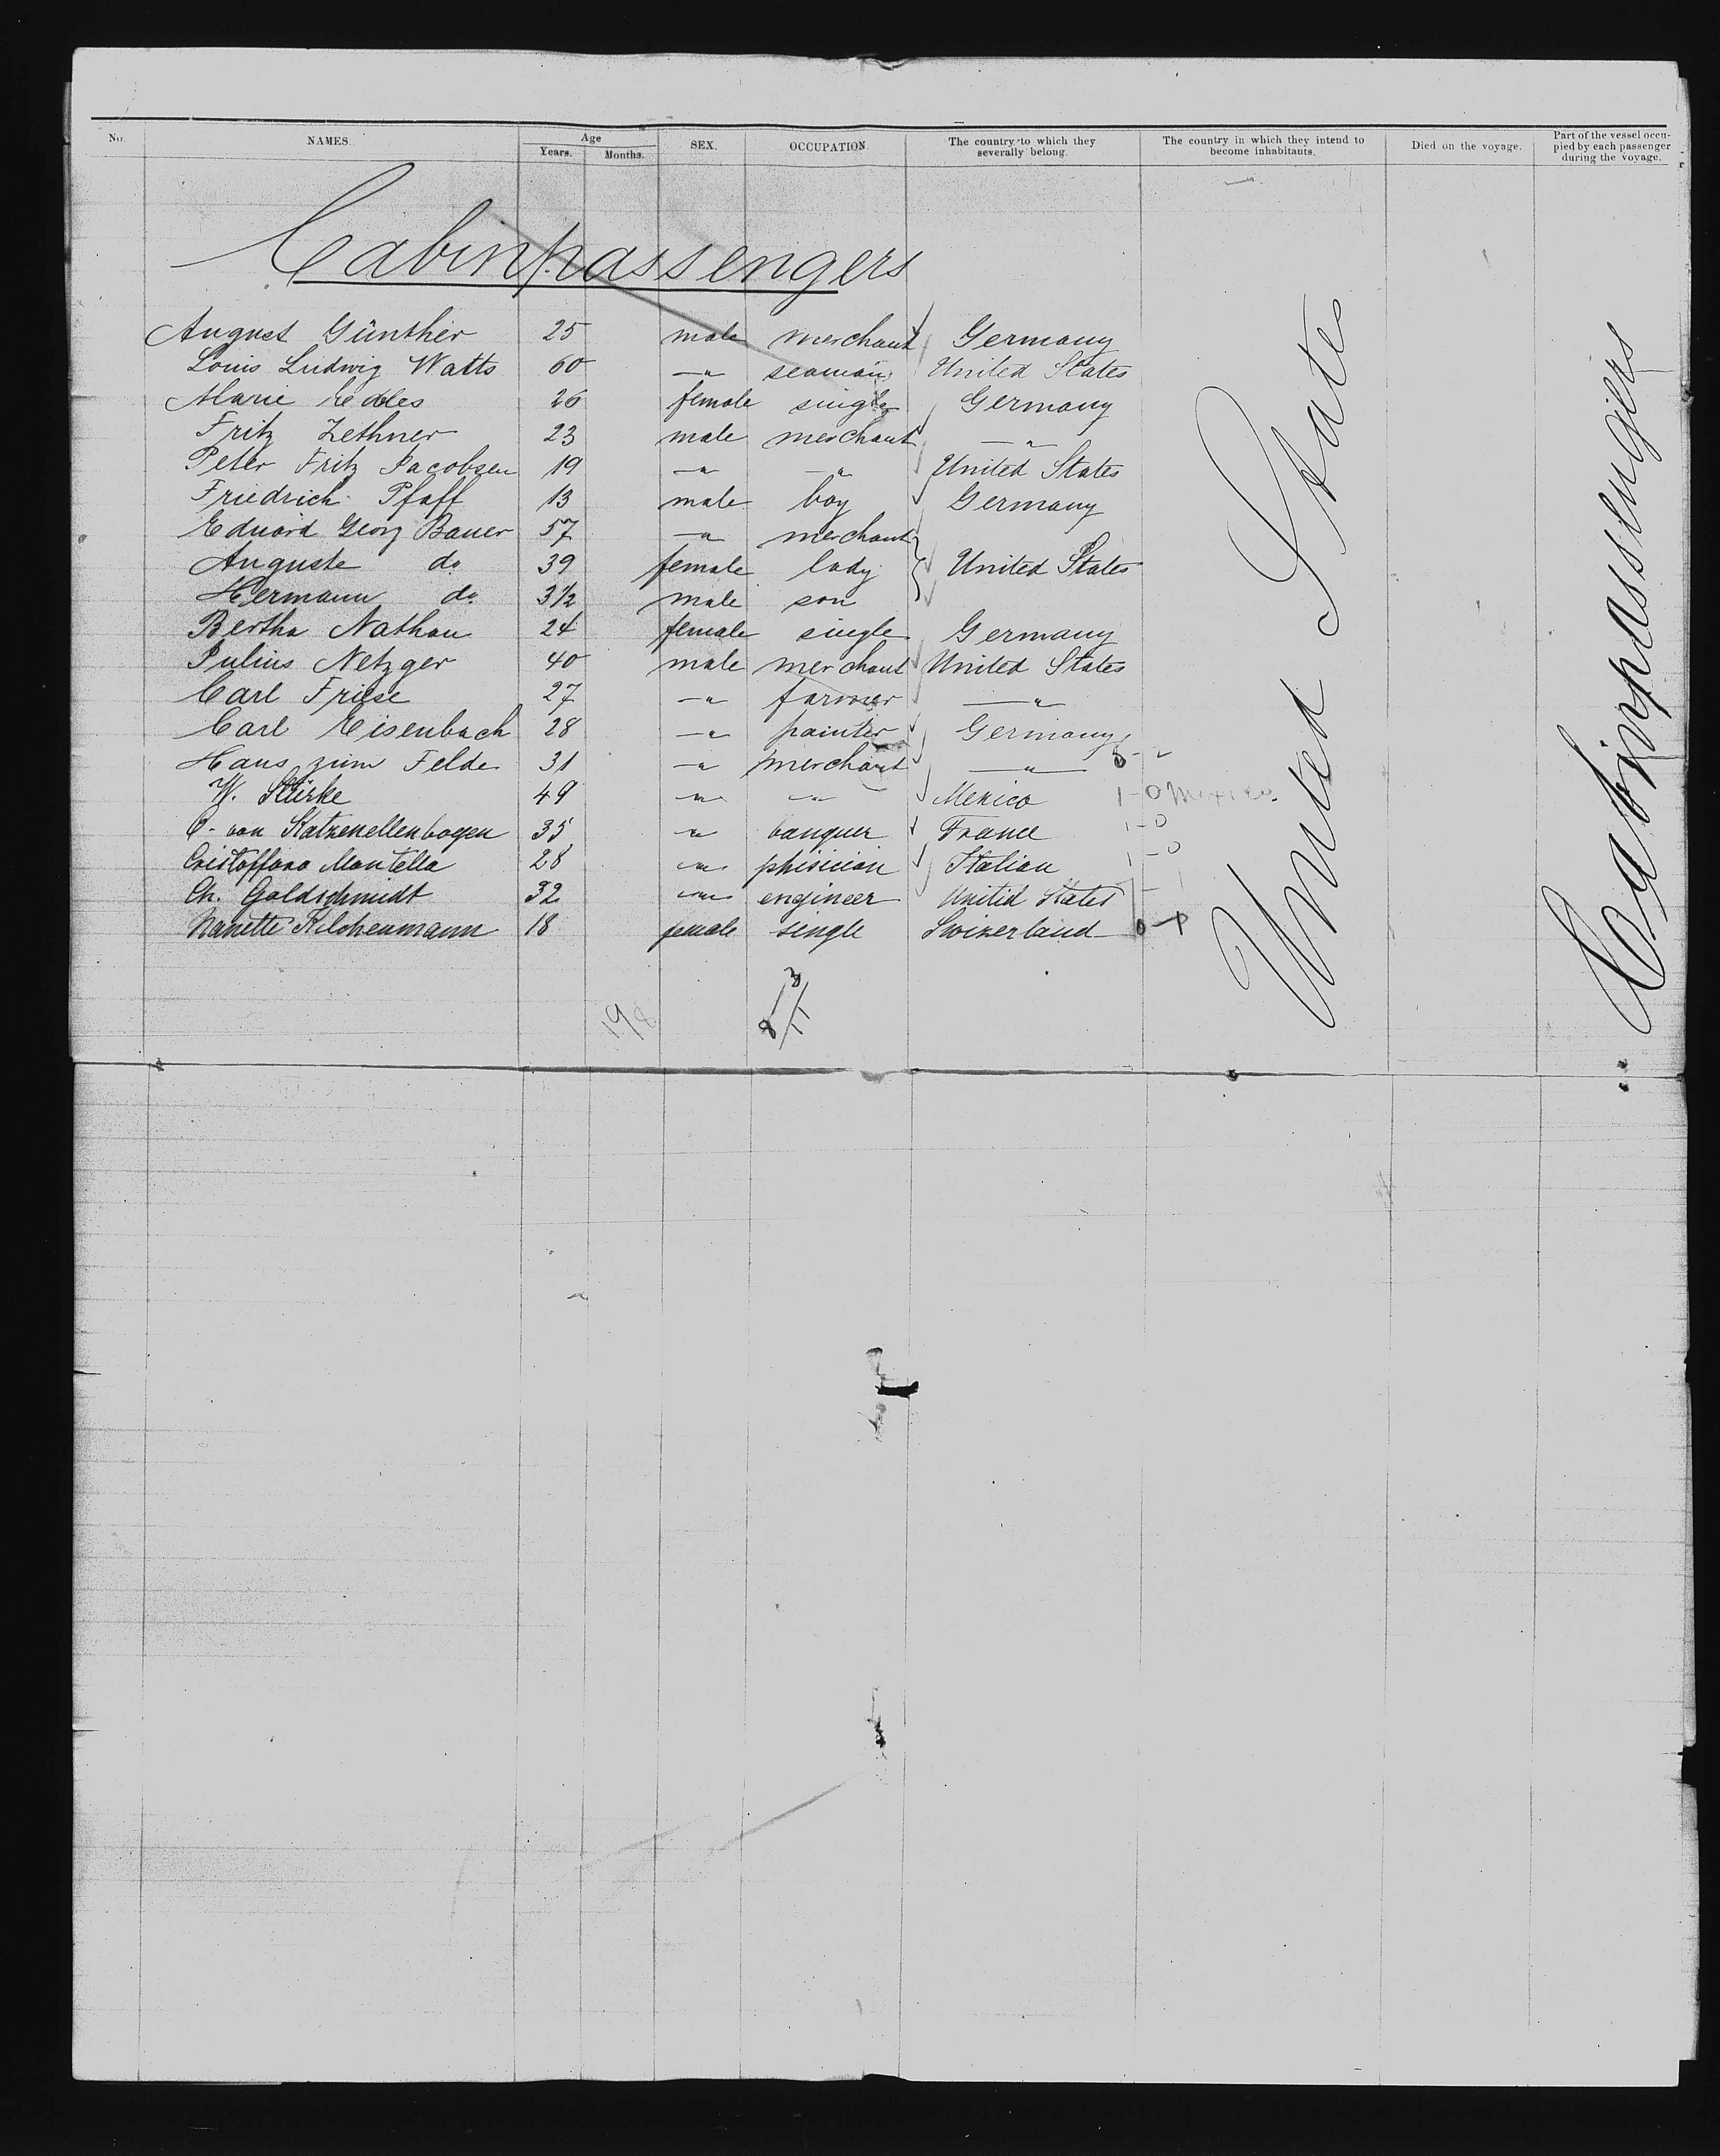 No. NAMES. Age Years. Months. SEX. OCCUPATION. The country to which they severally belong. The country in which they intend to become inhabitants. Died on the voyage. Part of the vessel occupied by each passenger during the voyage.
Cabinpassengers
August Günther 25 male merchant Germany
Louis Ludwig Watts 60 —"— seaman United States
Marie Eddles 26 female single Germany
Fritz Zethner 23 male merchant —"—
Peter Fritz Jacobsen 19 —"— —"— United States
Friedrich Pfaff 13 male boy Germany
Eduard Georg Bauer 57 —"— merchant
Auguste do 39 female lady United States
Hermann do 3 1/2 male son
Bertha Nathan 24 female single Germany
Julius Netzger 40 male merchant United States
Carl Friese 27 —"— farmer —"—
Carl Eisenbach 28 —"— painter Germany
Hans zum Felde 31 —"— merchant —"—
W. Stürke 49 —"— —"— Mexico 1-0 Mexico
C. von Katzenellenbogen 35 —"— banquer France 1-0
Cristofforo Montella 28 —"— phisician Italian 1-0
Ch. Goldschmidt 32 —"— engineer Unitid States
Nanette Kilchenmann 18 female single Swizerland
19/8
3
8/11
United States
Cabinpassengers